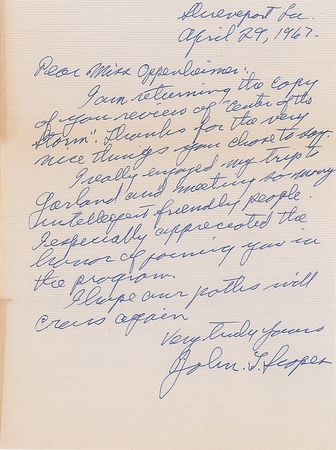 Shreveport La.
April 29, 1967.
Dear Miss Oppenheimer:
I am returning the copy
of you review of "Center of the
Storm". Thanks for the very
nice things you chose to say.
I really enjoyed my trip to
Garland and meeting so many
intellegent friendly people.
I especially appreciated the
honor of joining you in
the program.
I hope our paths will
cross again
Very truly yours
John T. Scopes